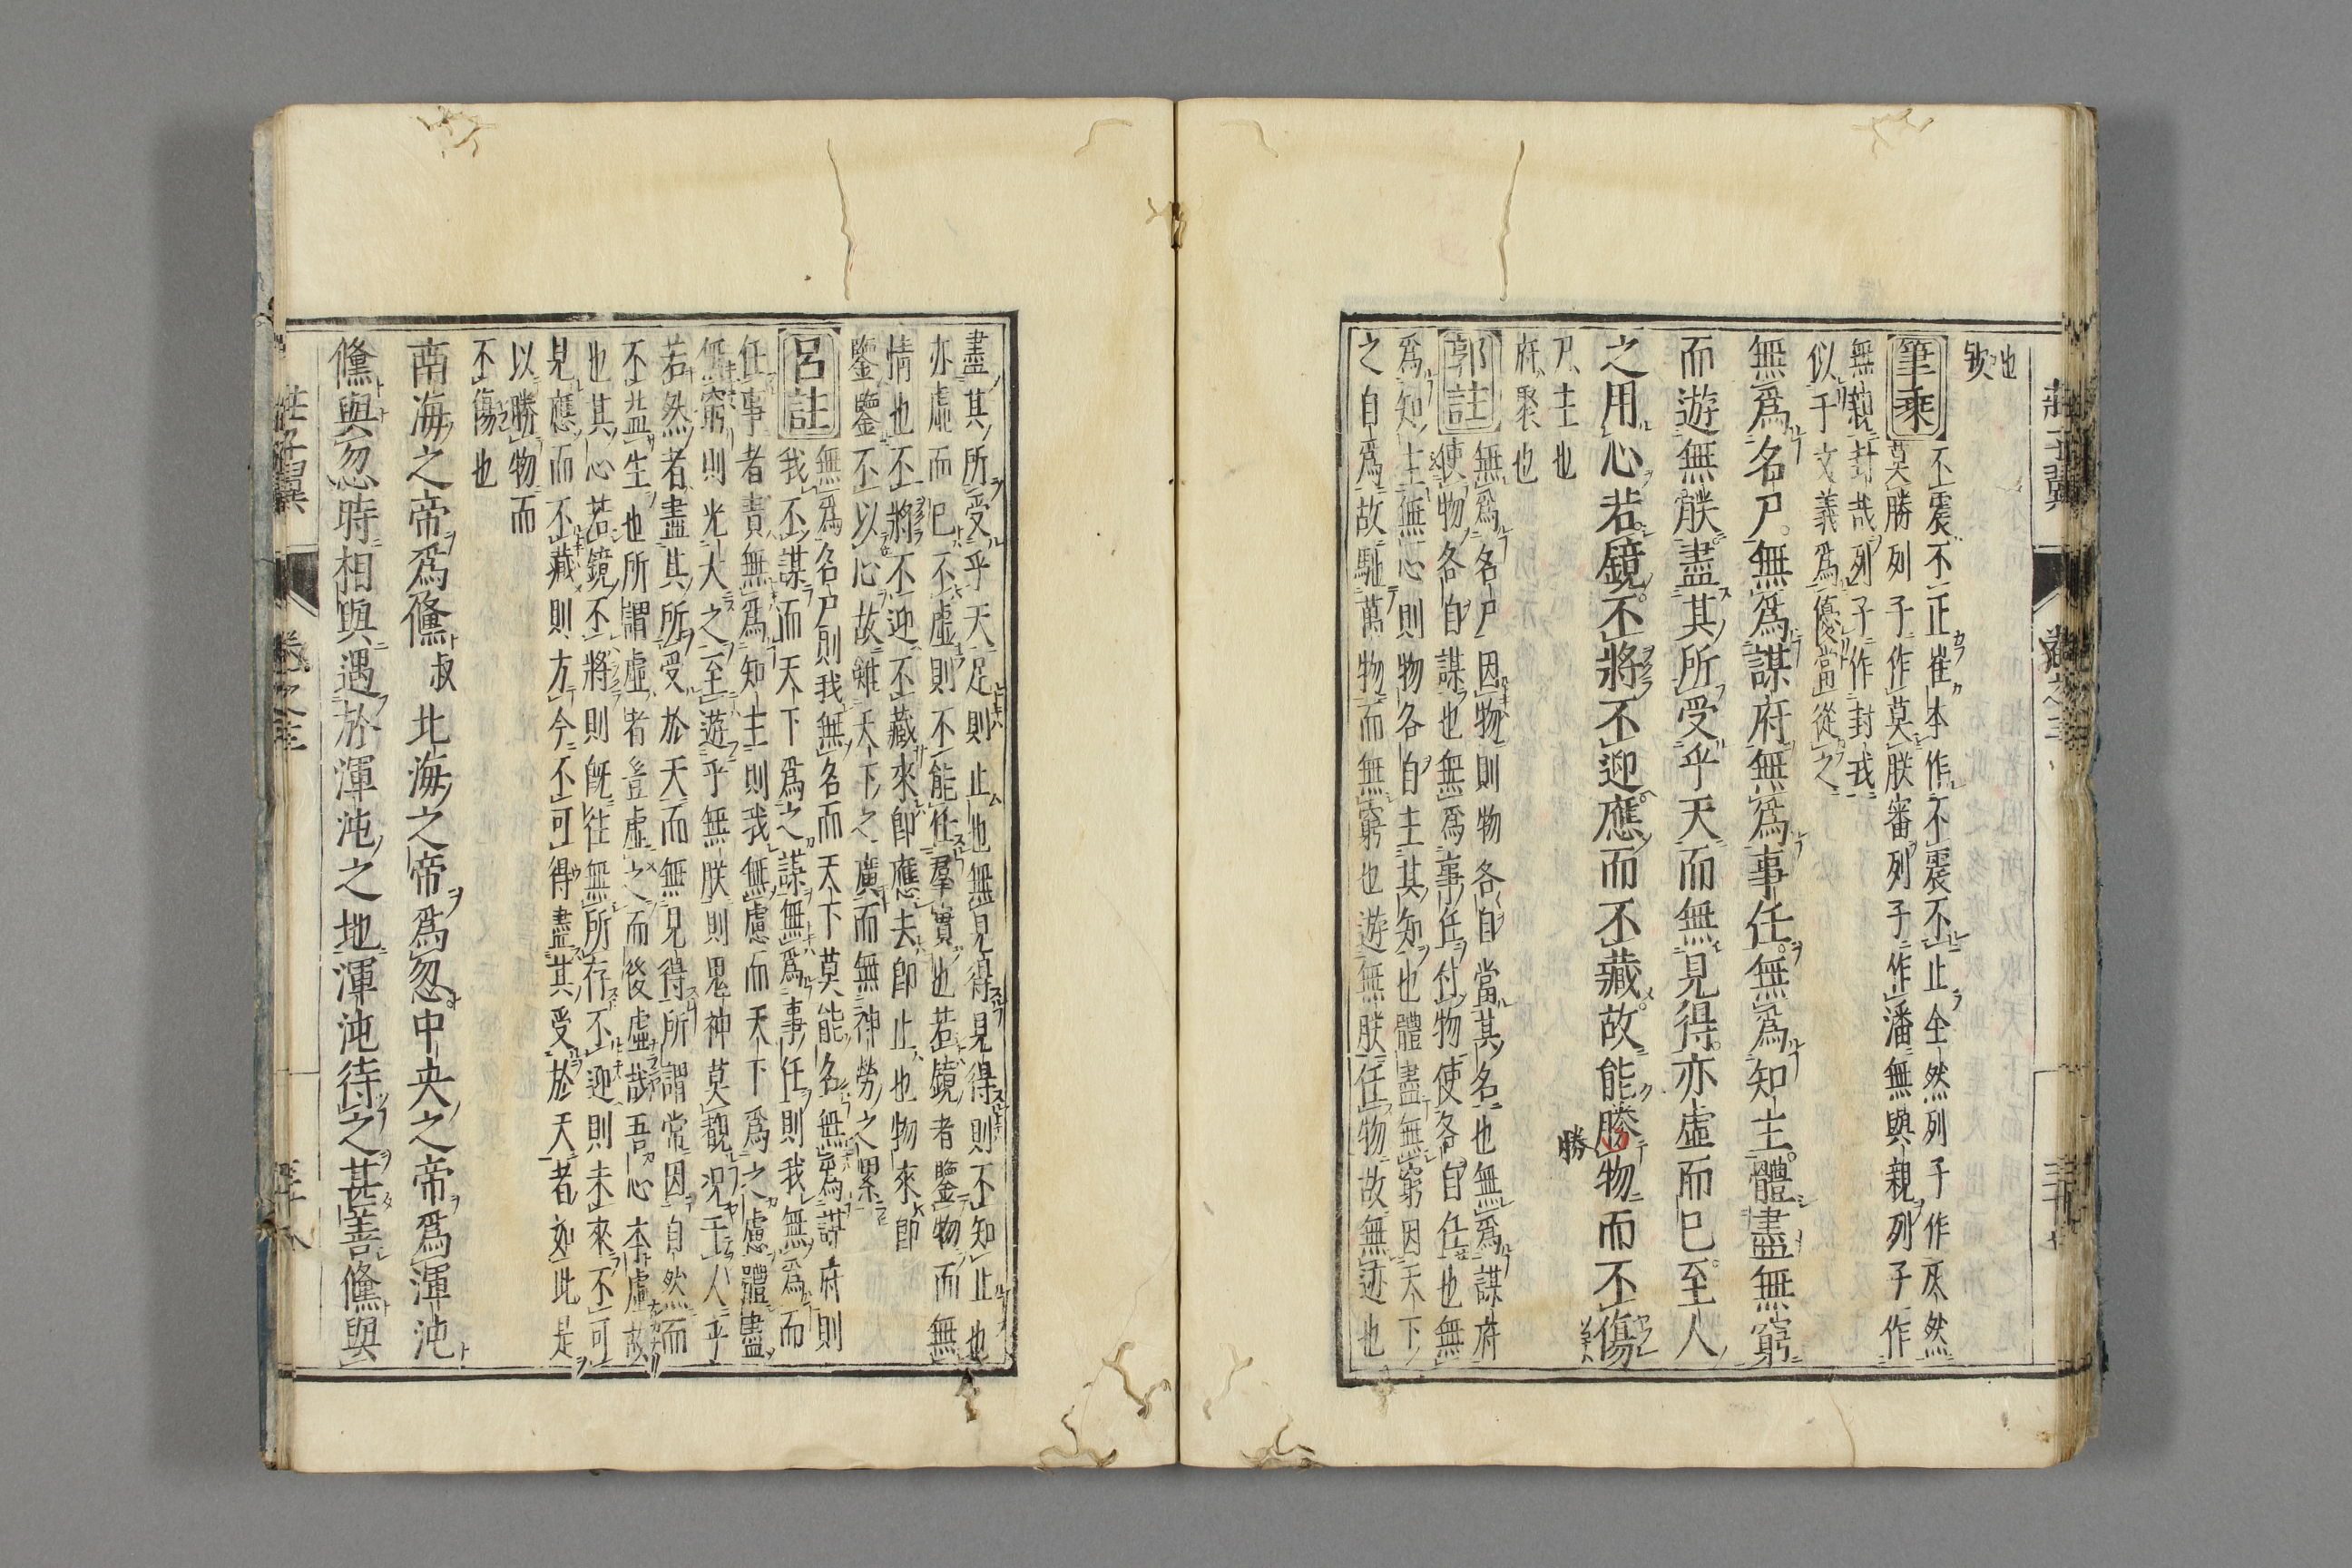 莊子翼
卷之三
三十七
也
欤
筆乘
不震不正崔本作不震不止全然列子作灰然
莫勝列子作莫朕審列子作潘無與親列子作
無親封哉列子作封戎
似于文義爲優當從之
無爲名尸無爲謀府無爲事任無爲知主體盡無窮
而遊無朕盡其所受乎天而無見得亦虛而已至人
之用心若鏡不將不迎應而不藏故能勝物而不傷
勝
尸主也
府聚也
郭註
無爲名尸因物則物各自當其名也無爲謀府
使物各自謀也無爲事任付物使各自任也無
爲知主無心則物各自主其知也體盡無窮因天下
之自爲故馳萬物而無窮也遊無朕任物故無迹也
盡其所受乎天足則止也無見得見得則不知止也
亦虛而已不虛則不能任羣實也若鏡者鑒物而無
情也不將不迎不藏來即應去即止也物來即
鑒鑒不以心故雖天下之廣而無神勞之累
呂註
無爲名尸則我無名而天下莫能名無爲謀府則
我不謀而天下爲之謀無爲事任則我無爲而
任事者責無爲知主則我無慮而天下爲之慮體盡
無窮則光大之至遊乎無朕則鬼神莫覩況于人乎
若然者盡其所受於天而無見得所謂常因自然而
不益生也所謂虛者豈虛之而後虛哉吾心本虛故
也其心若鏡不將則既往無所存不迎則未來不可
見應而不藏則方今不可得盡其受於天者如此是
以勝物而
不傷也
南海之帝爲儵叔北海之帝爲忽中央之帝爲渾沌
儵與忽時相與遇於渾沌之地渾沌待之甚善儵與
莊子翼
卷之三
三十八